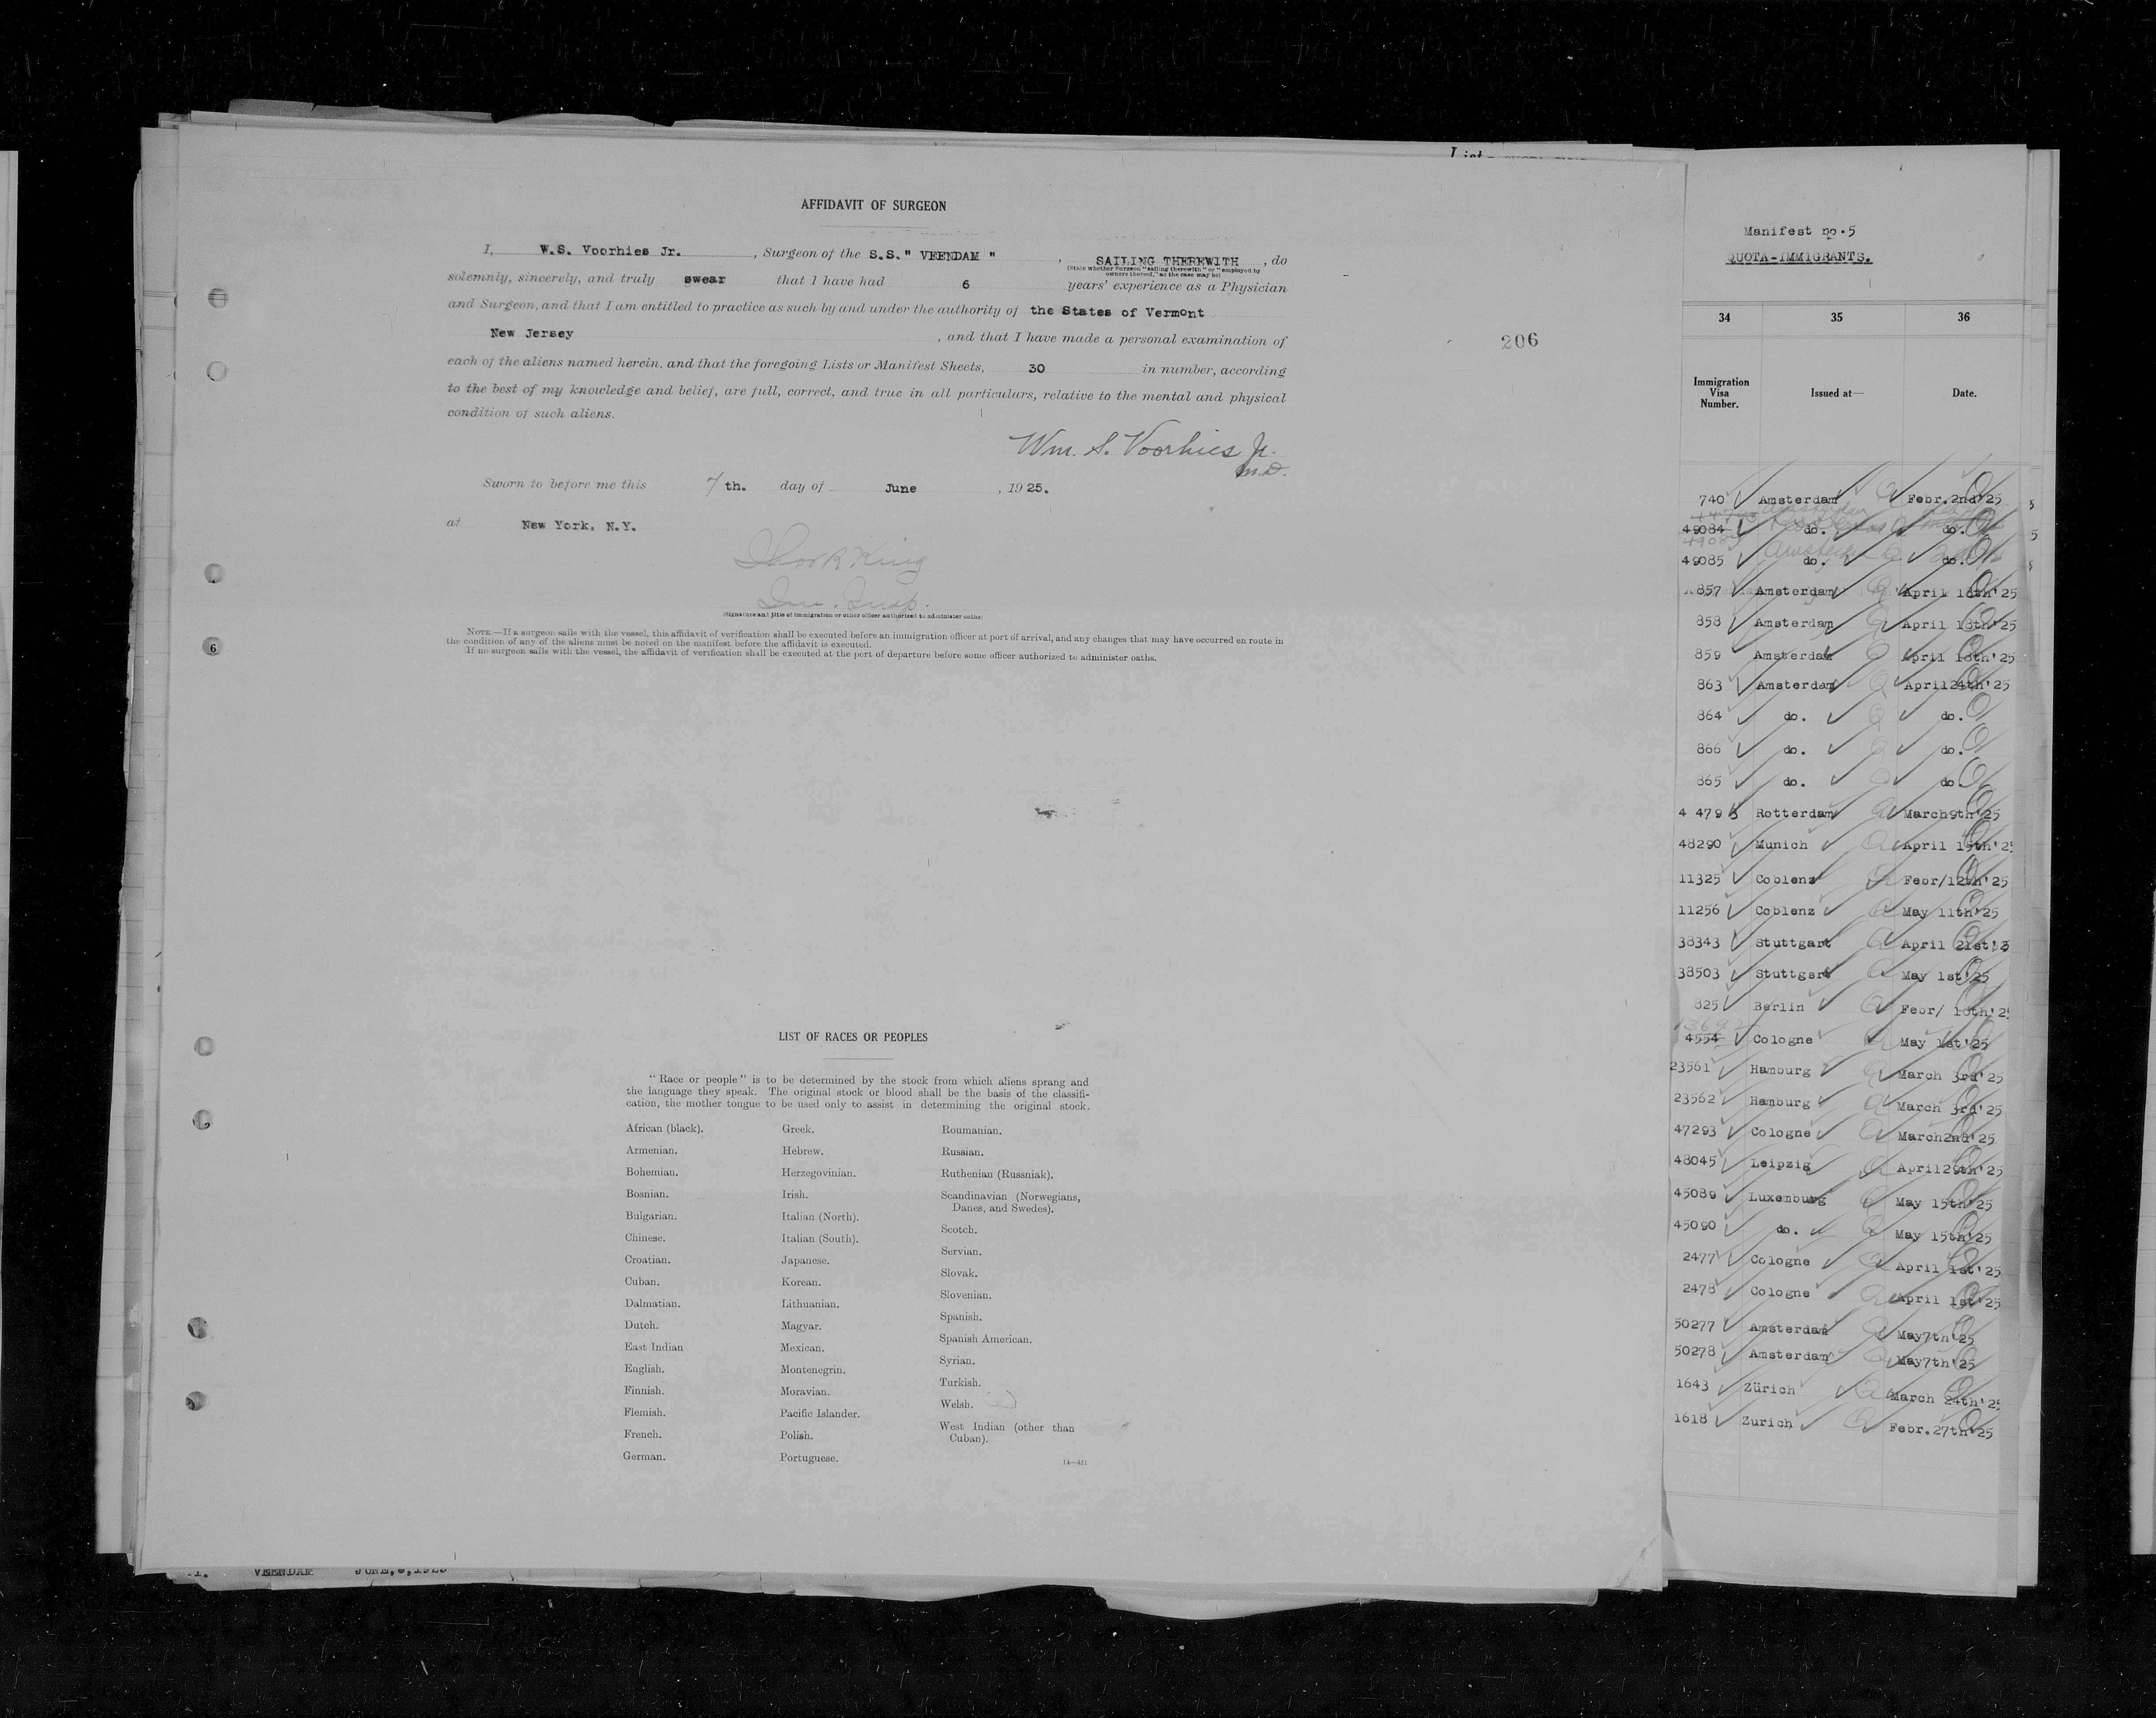 AFFIDAVIT OF SURGEON
I, W.S. Voorhies Jr. , Surgeon of the S.S. " VEENDAM " , SAILING THEREWITH , do
(State whether Surgeon "sailing therewith" or "employed by
owners thereof," as the case may be)
solemnly, sincerely, and truly swear that I have had 6 years' experience as a Physician
and Surgeon, and that I am entitled to practice as such by and under the authority of the States of Vermont
New Jersey , and that I have made a personal examination of
each of the aliens named herein, and that the foregoing Lists or Manifest Sheets, 30 in number, according
to the best of my knowledge and belief, are full, correct, and true in all particulars, relative to the mental and physical
condition of such aliens.
Wm. S. Voorhies Jr.
M.D.
Sworn to before me this 7th. day of June , 1925.
at New York, N.Y.
King
Imm. Insp.
(Signature and title of immigration or other officer authorized to administer oaths)
NOTE.—If a surgeon sails with the vessel, this affidavit of verification shall be executed before an immigration officer at port of arrival, and any changes that may have occurred en route in
the condition of any of the aliens must be noted on the manifest before the affidavit is executed.
If no surgeon sails with the vessel, the affidavit of verification shall be executed at the port of departure before some officer authorized to administer oaths.
206
6
LIST OF RACES OR PEOPLES
"Race or people" is to be determined by the stock from which aliens sprang and
the language they speak. The original stock or blood shall be the basis of the classifi-
cation, the mother tongue to be used only to assist in determining the original stock.
African (black).
Armenian.
Bohemian.
Bosnian.
Bulgarian.
Chinese.
Croatian.
Cuban.
Dalmatian.
Dutch.
East Indian
English.
Finnish.
Flemish.
French.
German.
Greek.
Hebrew.
Herzegovinian.
Irish.
Italian (North).
Italian (South).
Japanese.
Korean.
Lithuanian.
Magyar.
Mexican.
Montenegrin.
Moravian.
Pacific Islander.
Polish.
Portuguese.
Roumanian.
Russian.
Ruthenian (Russniak).
Scandinavian (Norwegians,
Danes, and Swedes).
Scotch.
Servian.
Slovak.
Slovenian.
Spanish.
Spanish American.
Syrian.
Turkish.
Welsh.
West Indian (other than
Cuban).
14—431
VEENDAM JUNE,6,1925
Manifest no.5
QUOTA-IMMIGRANTS.
34 35 36
Immigration
Visa
Number.
Issued at—
Date.
740 Amsterdam Febr.2nd'25
49084 do. do.
49085 do. do.
857 Amsterdam April 18th'25
858 Amsterdam April 18th'25
859 Amsterdam April 18th'25
863 Amsterdam April24th'25
864 do. do.
866 do. do.
865 do. do.
4 479 Rotterdam March9th'25
48290 Munich April 15th'25
11325 Coblenz Febr/12th'25
11256 Coblenz May 11th'25
38343 Stuttgart April 21st'2
38503 Stuttgart May 1st'25
825 Berlin Febr/ 10th'25
4554 Cologne May 1st'25
23561 Hamburg March 3rd'25
23562 Hamburg March 3rd'25
47293 Cologne March2nd'25
48045 Leipzig April29th'25
45089 Luxemburg May 15th'25
45090 do. May 15th'25
2477 Cologne April 1st'25
2478 Cologne April 1st'25
50277 Amsterdam May7th'25
50278 Amsterdam May7th'25
1643 Zürich March 24th'25
1618 Zurich Febr.27th'25